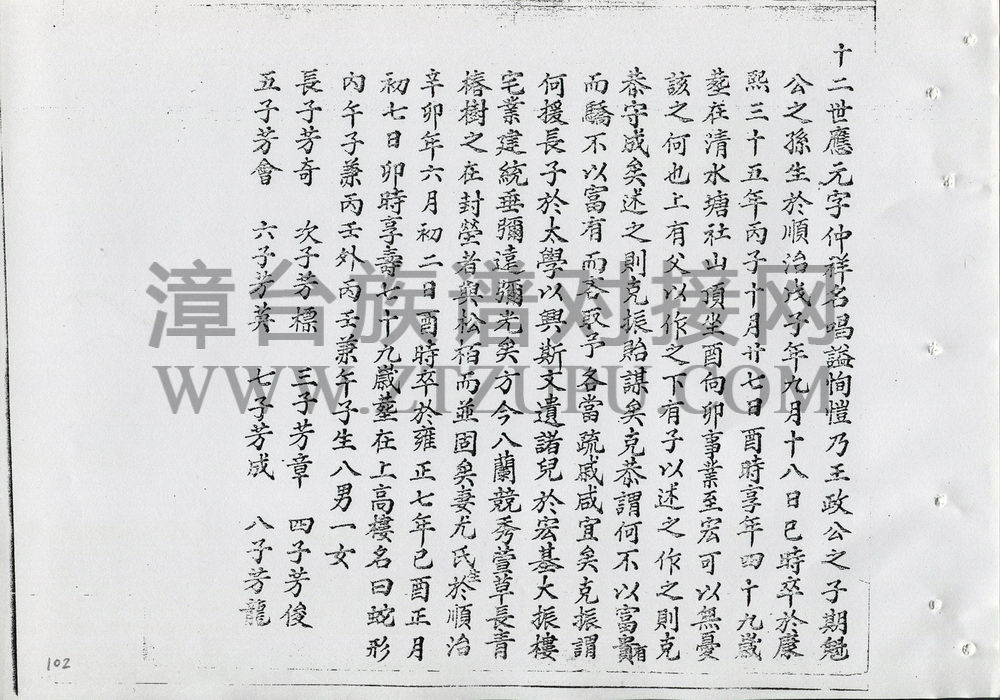 十二世應元字仲祥名唱謚恂愷乃王政公之子期魁
公之孫生於順治戊子年九月十八日巳時卒於康
熙三十五年丙子十月廿七日酉時享年四十九歲
塟在清水塘社山頂坐酉向卯事業至宏可以無憂
該之何也上有父以作之下有子以述之作之則克
恭守成矣述之則克振貽謀矣克恭謂何不以富貴有
而驕不以富有而吝取予各當疏戚咸宜矣克振謂
何援長子於太學以興斯文遺諸兒於宏基大振樓
宅業建統垂彌遠彌光矣方今八蘭競秀萱草長青
椿樹之在封塋者與松栢而並固矣妻尤氏生於順治
辛卯年六月初二日酉時卒於雍正七年己酉正月
初七日卯時享壽七十九歲塟在上高樓名曰蛇形
內午子兼丙壬外丙壬兼午子生八男一女
長子芳奇 次子芳標 三子芳章 四子芳俊
五子芳會 六子芳英 七子芳成 八子芳龍
漳台族谱对接网
WWW.ZTZUPU.COM
102